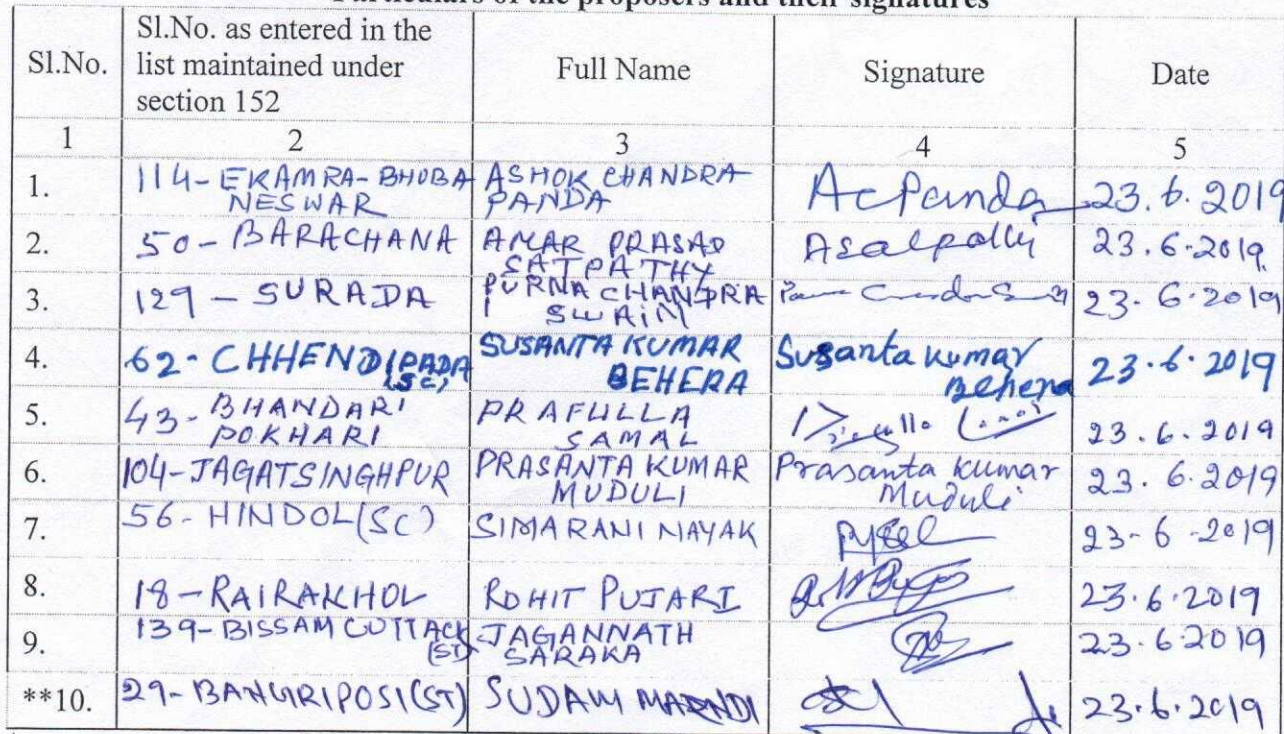 Particulars of the proposers and their signatures
Sl.No. Sl.No. as entered in the list maintained under section 152 Full Name Signature Date
1 2 3 4 5
1. 114-EKAMRA-BHUBA NESWAR ASHOK CHANDRA PANDA AcPanda 23.6.2019
2. 50-BARACHANA AMAR PRASAD SATPATHY 23.6.2019.
3. 129-SURADA PURNA CHANDRA SWAIN 23.6.2019
4. 62-CHHENDIPADA (SC) SUSANTA KUMAR BEHERA Susanta kumar Behera 23.6.2019
5. 43-BHANDARI POKHARI PRAFULLA SAMAL 23.6.2019
6. 104-JAGATSINGHPUR PRASANTA KUMAR MUDULI Prasanta kumar Muduli 23.6.2019
7. 56-HINDOL(SC) SIMARANI NAYAK 23-6-2019
8. 18-RAIRAKHOL ROHIT PUJARI 23.6.2019
9. 139-BISSAM CUTTACK (ST) JAGANNATH SARAKA 23.6.2019
**10. 29-BANGIRIPOSI(ST) SUDAM MARNDI 23.6.2019